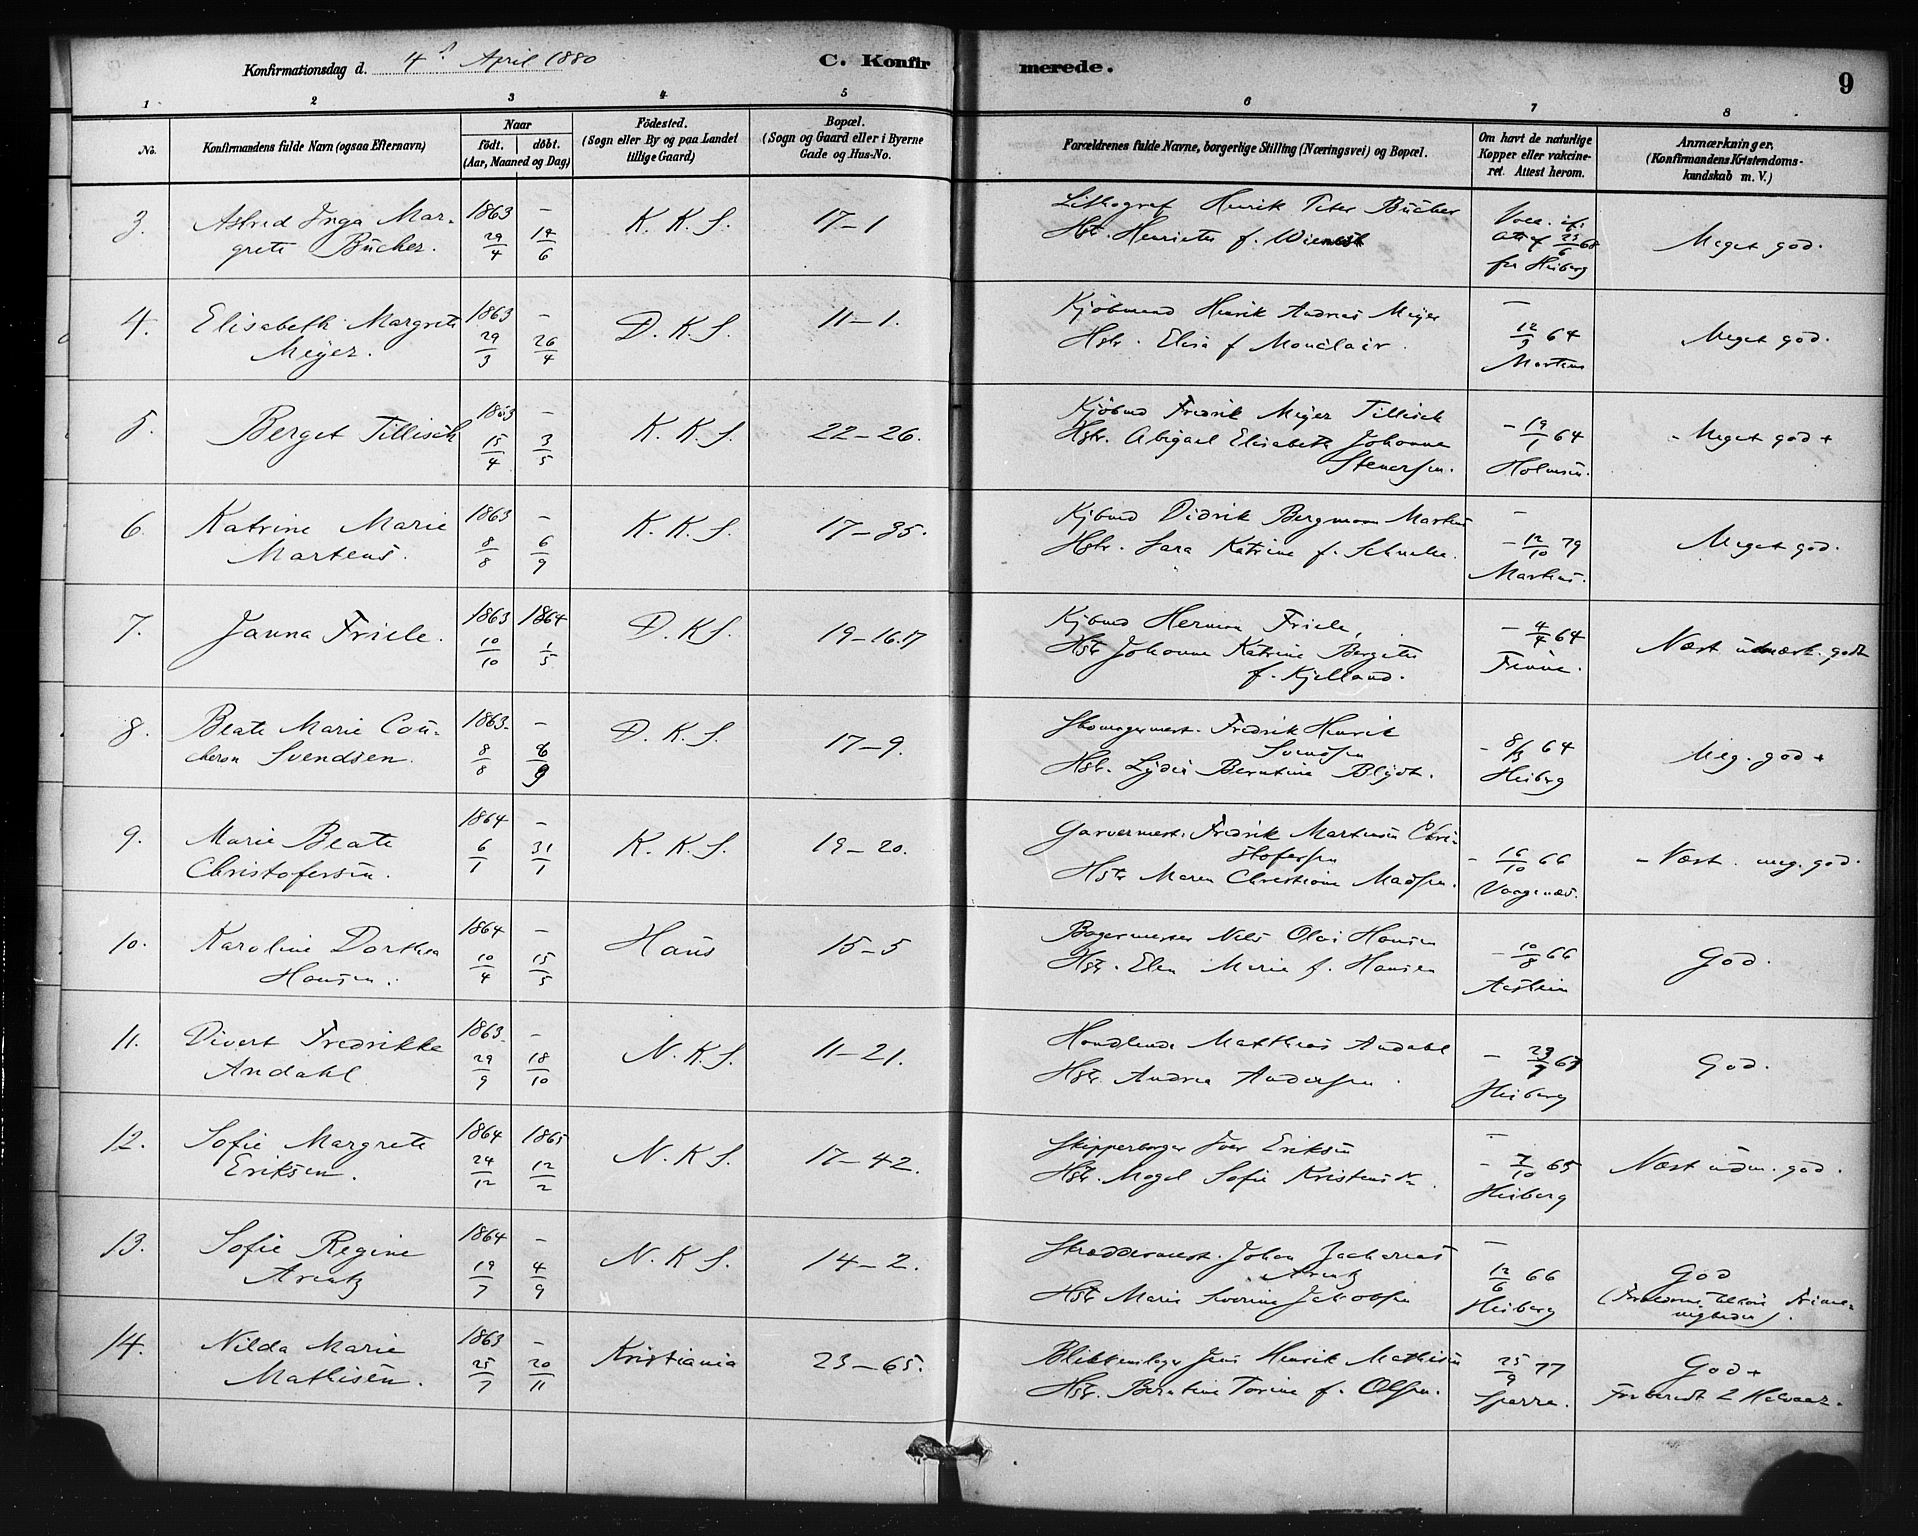 Konfirmationsdag d. 4de April 1880
C. Konfirmerede.
9
1 2 3 4 5 6 7 8
No.
Konfirmandens fulde Navn (ogsaa Efternavn)
Naar
födt. döbt.
(Aar, Maaned og Dag)
Födested.
(Sogn eller By og paa Landet
tillige Gaard)
Bopæl.
(Sogn og Gaard eller i Byerne
Gade og Hus-No.
Forældrenes fulde Navne, borgerlige Stilling (Næringsvei) og Bopæl.
Om havt de naturlige
Kopper eller vakcine-
ret. Attest herom.
Anmærkninger.
(Konfirmandens Kristendoms-
kundskab m. V.)
3. Astrid Inga Mar- 1863 – K. K. S. 17–1 Lithograf Henrik Peter Bücher
grete Bücher. 29/4 14/6 Hstr. Henriette f. Meget god.
for Heiberg
4. Elisabeth Margrete 1863 – D. K. S. 11–1. Kjöbmand Henrik Andreas Meyer –
Meyer. 29/3 26/4 Hstr. Elisa f Monclair. 12/9 64 Meget god.
Martens
5. Berget Tillisch 1863 – K. K. S. 22–26. Kjöbmd Fredrik Meyer Tillisch
15/4 3/5 Hstr. Abigael Elisabeth Johanne – 19/1 64 Meget god +
Stenersen. Holmsen.
6. Katrine Marie 1863 – K. K. S. 17–35. Kjbmd Didrik Bergmann Martens –
Martens. 8/8 6/9 Hstr. Sara Katrine f. – 12/10 79 Meget god.
Martens.
7. Janna Friele. 1863 1864 D. K. S. 19–16.17 Kjbmd Herman Friele, – 4/4 64
10/10 1/5 Hstr Johanne Katrine Bergite Næst udmærk. godt
f. Kjelland.
8. Beate Marie Cou- 1863 – D. K. S. 17–9. Skomagermest. Fredrik Henrik
cheron Svendsen. 8/8 6/9 Svendsen – 64 Meg. god +
Hstr. Lydia Berntine Blydt. Heiberg
9. Marie Beate 1864 – K. K. S. 19–20. Garvermest. Fredrik Martinus Chri-
Christofersen. 6/1 31/1 stofersen – 16/10 66 – Næst. meg. god.
Hstr Maren Christiane Madsen. Vaagenæs.
10. Karoline Dorthea 1864 – Haus 15–5 Bagermester Nils Olai Hansen
Hansen. 10/4 15/5 Hstr. Elen Marie f. Hansen – 10/8 66 God.
11. Divert Fredrikke 1863 – N. K. S. 11–21. Handlende Mathias Andahl
Andahl 29/9 18/10 Hstr. Andrea Andersen. God.
Heiberg
12. Sofie Margrete 1864 1865 N. K. S. 17–42. Skipperborger Iver Eriksen –
Eriksen. 24/12 12/2 Hstr. Magd Sofie – 7/10 65 Næst udm. god.
Heiberg
13. Sofie Regine 1864 – N. K. S. 14–2. Skræddermest. Johan Zacharias –
Arentz 19/7 4/9 Arentz 12/6 66 God
Hstr Marie Severine Jakobsen Heiberg
14. Nilda Marie 1863 – Kristiania 23–65. Blikkenslager Jens Henrik Mathisen 25/9 77 God +
Mathisen. 25/7 20/11 Hstr. Berntine Torine f. Olsen. Sparre. Forberedt 2 Halvaar.